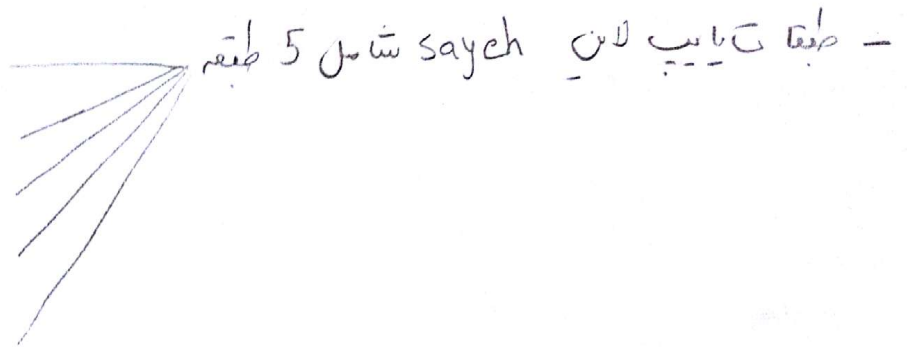 - طبقات پایپ لاین sayeh شامل 5 طبقه